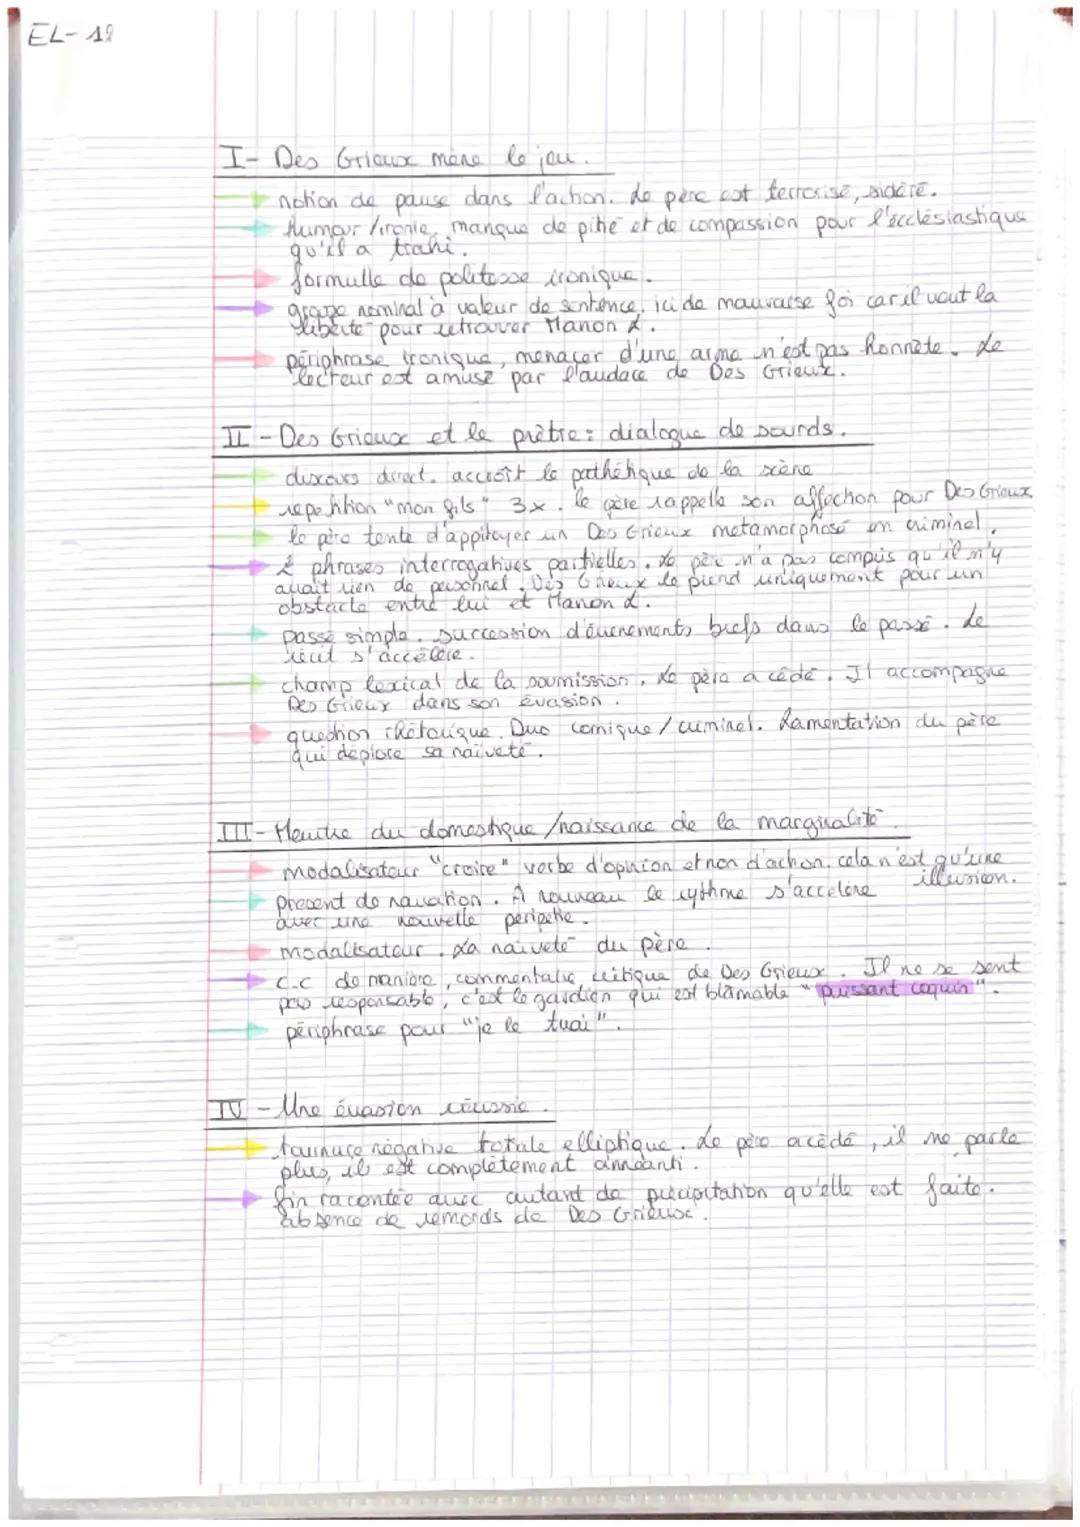 EL-12
I- Des Grieux mène le jeu.
notion de pause dans l'action. Le père est terrorisé, sidéré.
humour/ironie, manque de pitié et de compassion pour l'ecclésiastique
qu'il a trahi.
formulle de politesse ironique.
grape nominal à valeur de sentence, ici de mauvaise foi car il veut la
liberté pour retrouver Manon L.
périphrase ironique, menacer d'une arme n'est pas honnète. Le
lecteur est amusé par l'audace de Des Grieux.
II - Des Grieux et le prêtre : dialogue de sourds.
discours direct. accroît le pathétique de la scène
repetition "mon fils" 3x. le père rappelle son affection pour Des Grieux
le père tente d'appitoyer un Des Grieux métamorphosé en criminel.
2 phrases interrogatives partielles. Le père n'a pas compris qu'il n'y
avait rien de personnel. Des Grieux le prend uniquement pour un
obstacle entre lui et Manon L.
passé simple. succession d'évènements brefs dans le passé. Le
récit s'accélère.
champ lexical de la soumission. Le père a cédé. Il accompagne
Des Grieux dans son évasion.
question rhétorique. Duo comique/criminel. Lamentation du père
qui déplore sa naïveté.
III- Meurtre du domestique/naissance de la marginalité.
modalisateur "croire" verbe d'opinion et non d'action. cela n'est qu'une
illusion.
present de narration. À nouveau le rythme s'accélère
avec une nouvelle péripetie.
modalisateur. La naïveté du père.
C.C de manière, commentaire critique de Des Grieux. Il ne se sent
pas responsable, c'est le gardien qui est blâmable "puissant coquin".
périphrase pour "je le tuai".
IV - Une évasion réussie.
tournure négative totale elliptique. Le père a cédé, il ne parle
plus, il est complètement annéanti.
fin racontée avec autant de précipitation qu'elle est faite.
absence de remords de Des Grieux.